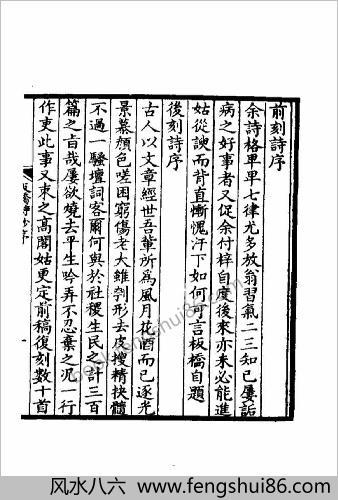 前刻詩序
余詩格卑卑七律尤多放翁習氣二三知已屢詬
病之好事者又促余付梓自度後來亦未必能進
姑從諛而背直慚愧汗下如何可言板橋自題
後刻詩序
古人以文章經世吾輩所爲風月花酒而已逐光
景慕顏色嗟困窮傷老大雖刳形去皮搜精抉髓
不過一騷壇詞客爾何與於社稷生民之計三百
篇之旨哉屢欲燒去平生吟弄不忍棄之况一行
作吏此事又束之高閣姑更定前稿復刻數十首
風水八六 www.fengshui86.com